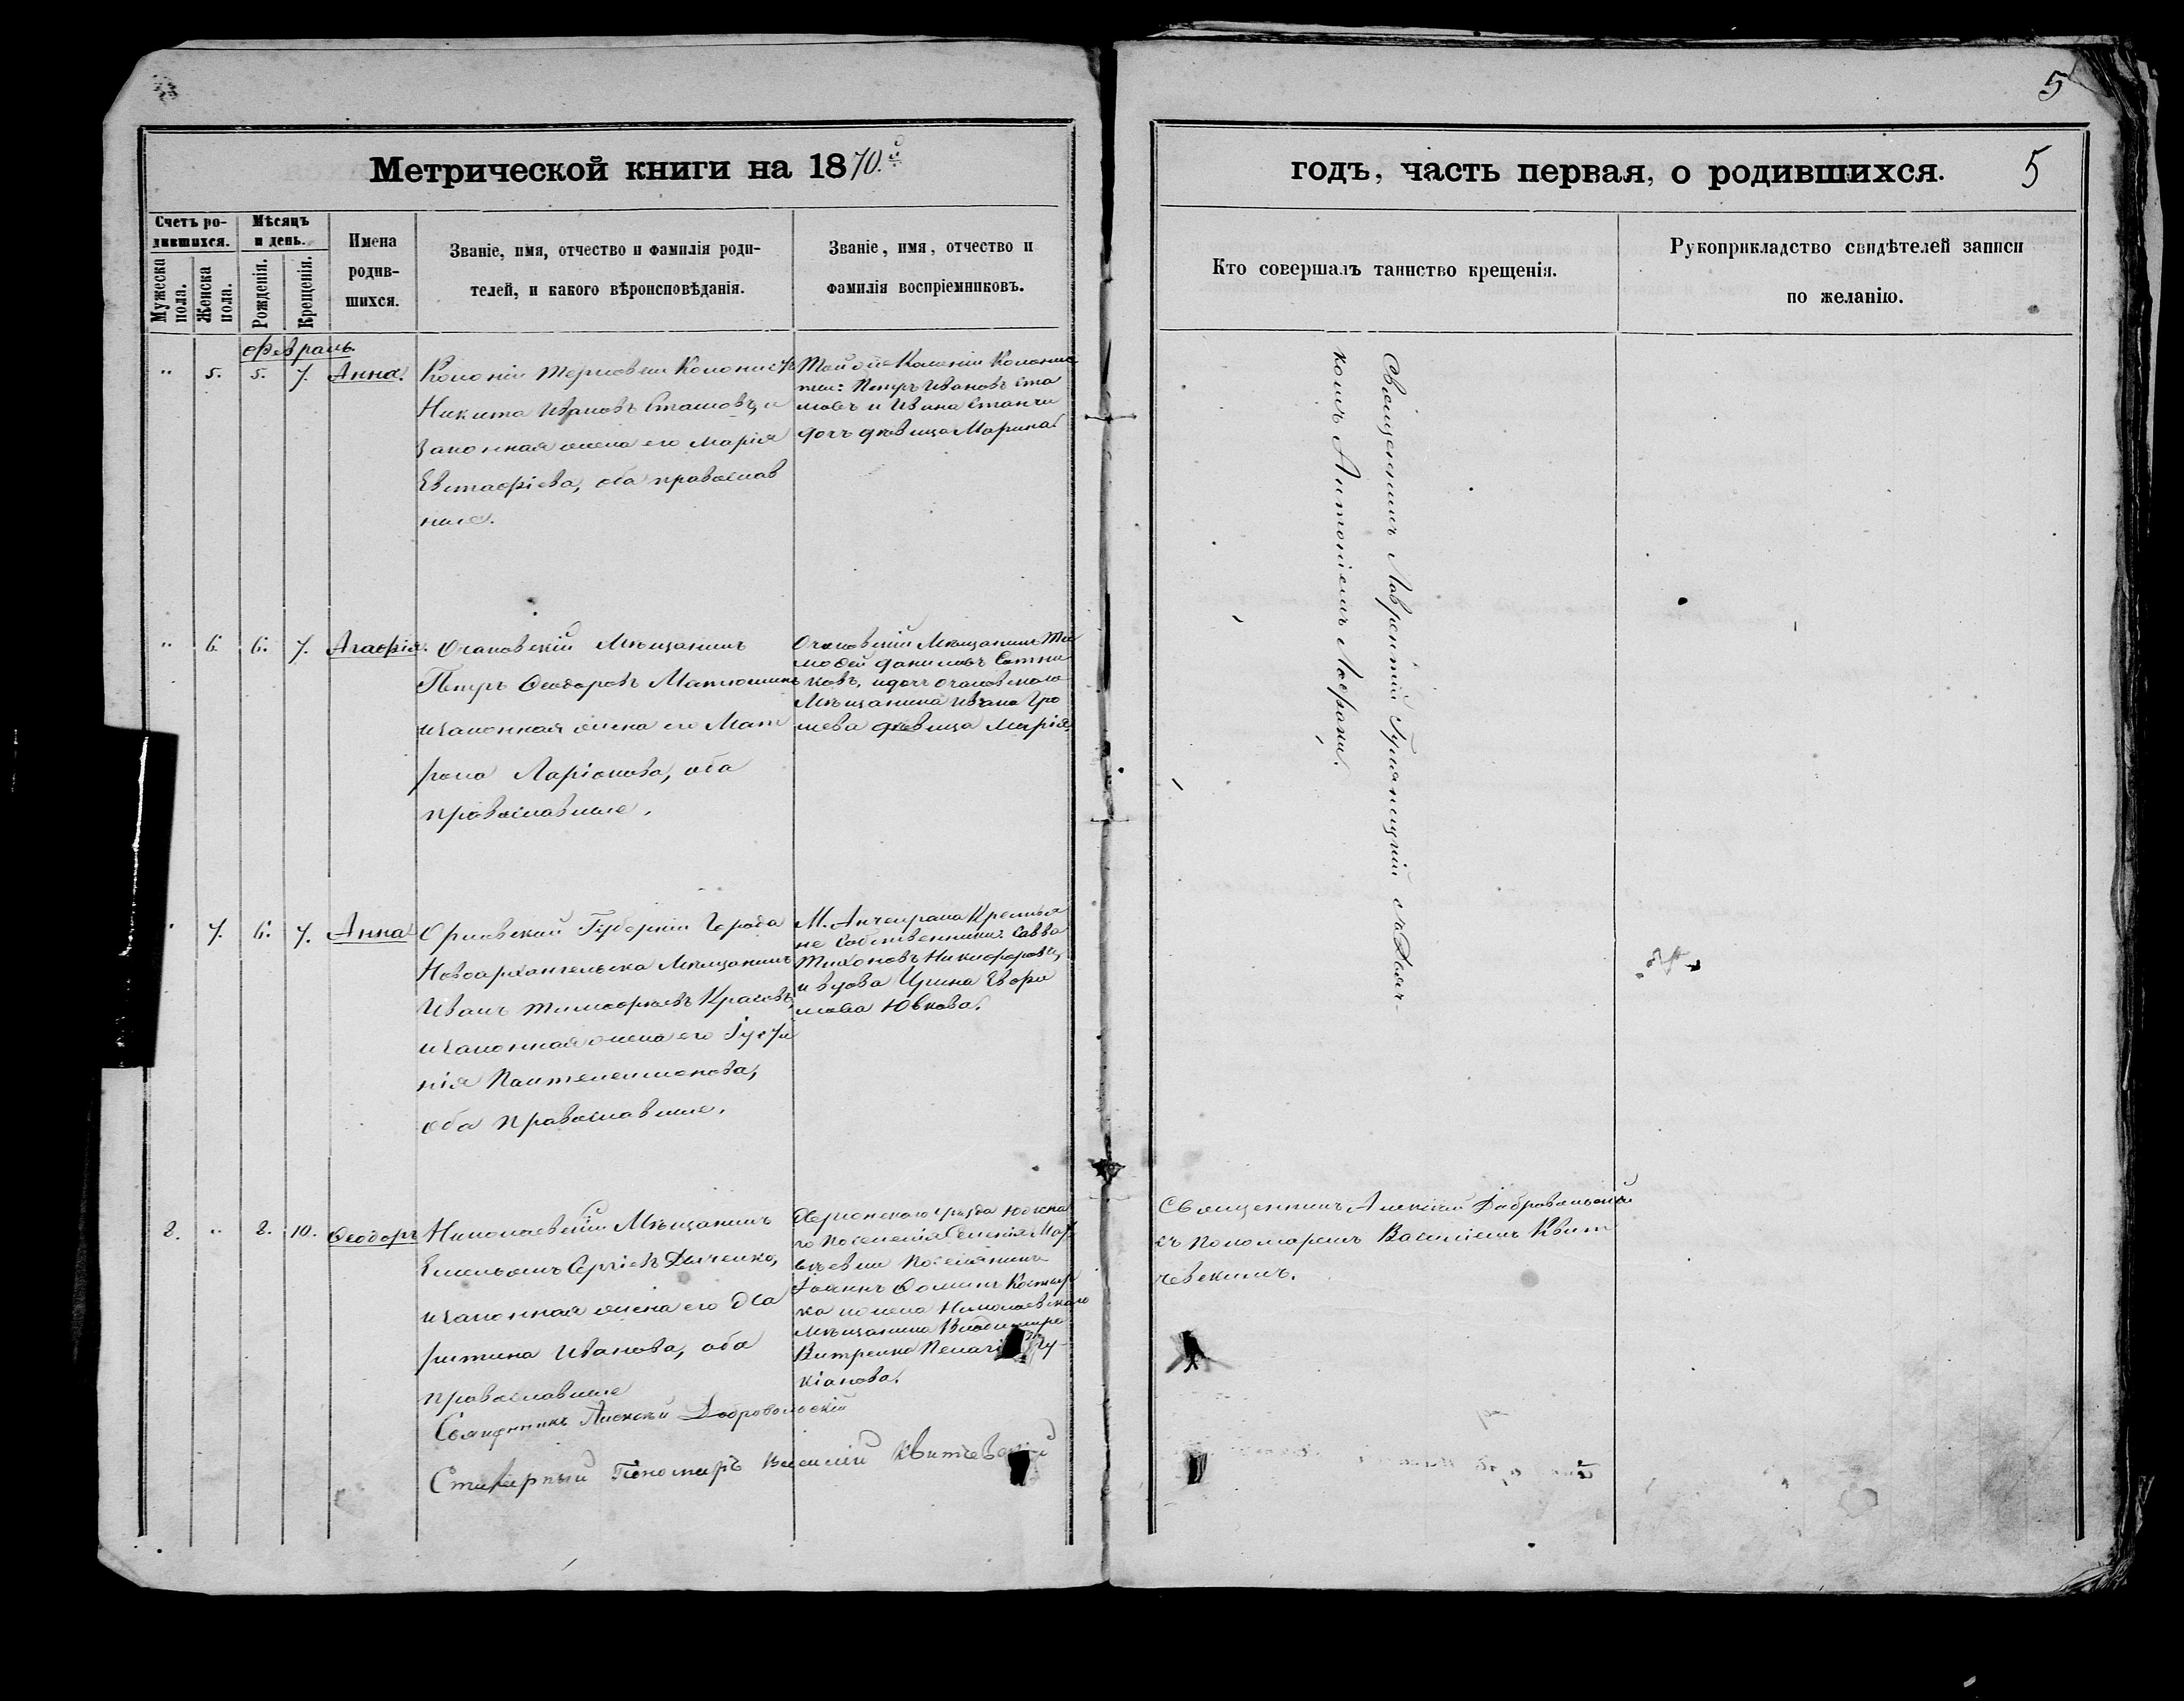 5
Метрической книги на 1870.й
годъ, часть первая, о родившихся. 5
Счетъ ро-
дившихся.
Мужеска
пола.
Женска
пола.
Мѣсяцъ
и день.
Рожденія.
Крещенія.
Имена
родив-
шихся.
Званіе, имя, отчество и фамилія роди-
телей, и какого вѣроисповѣданія.
Званіе, имя, отчество и
фамилія воспріемниковъ.
Кто совершалъ таинство крещенія.
Рукоприкладство свидѣтелей записи
по желанію.
Февраль
" 5. 5. 7. Анна.
Колоніи Терновки Колонистъ
Никита Ивановъ Стамовъ, и
законная жена его Марія
Евстафіева, оба православ
ные.
Той же Колоніи Колонис
ты: Петръ Ивановъ Ста
мовъ и Ивана Станчи
дочь дѣвица Марина.
Священникъ Лаврентій съ Дьяч-
комъ Антоніемъ
" 6. 6. 7. Агафія.
Очаковскій Мѣщанинъ
Петръ Ѳеодоровъ Матюшинъ
и законная жена его Мат
рона Ларіонова, оба
православные.
Очаковскій Мѣщанинъ Ти
мофей Даниловъ Сотни
ковъ, и дочь очаковскаго
Мѣщанина Ивана Гро
шева дѣвица Марія.
" 7. 6. 7. Анна
Орловской Губерніи Города
Новоархангельска Мѣщанинъ
Иванъ Тимофѣевъ Красовъ,
и законная жена его Густи
нія Пантелеимонова,
оба православные.
М. Анчекрака Крестья
не Собственники: Савва
Тихоновъ Никифоровъ,
и вдова Ирина Ефри
мова Ювкова.
2. " 2. 10. Ѳеодоръ
Николаевскій Мѣщанинъ
Емельянъ Сергіевъ Дьяченко,
и законная жена его Ха
ритина Иванова, оба
православные
Херсонскаго уѣзда
го поселенія Селенія
Поселянинъ
Іоаннъ Ѳоминъ
ка и жена Николаевскаго
Мѣщанина Владимира
Витренка
кіанова.
Священникъ Алексій Добровольскій
съ Пономаремъ Василіемъ Квит
чевскимъ.
Священникъ Алексій Добровольскій
Пономарь Василій Квитчевскій